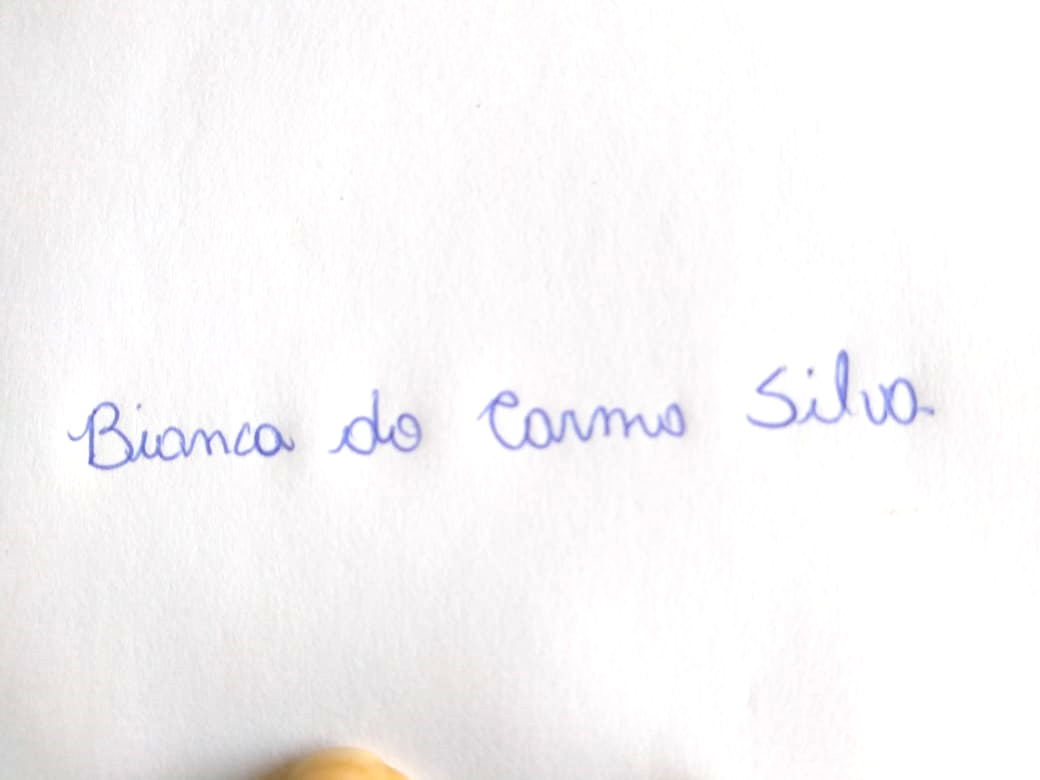 Bianca do Carmo Silva